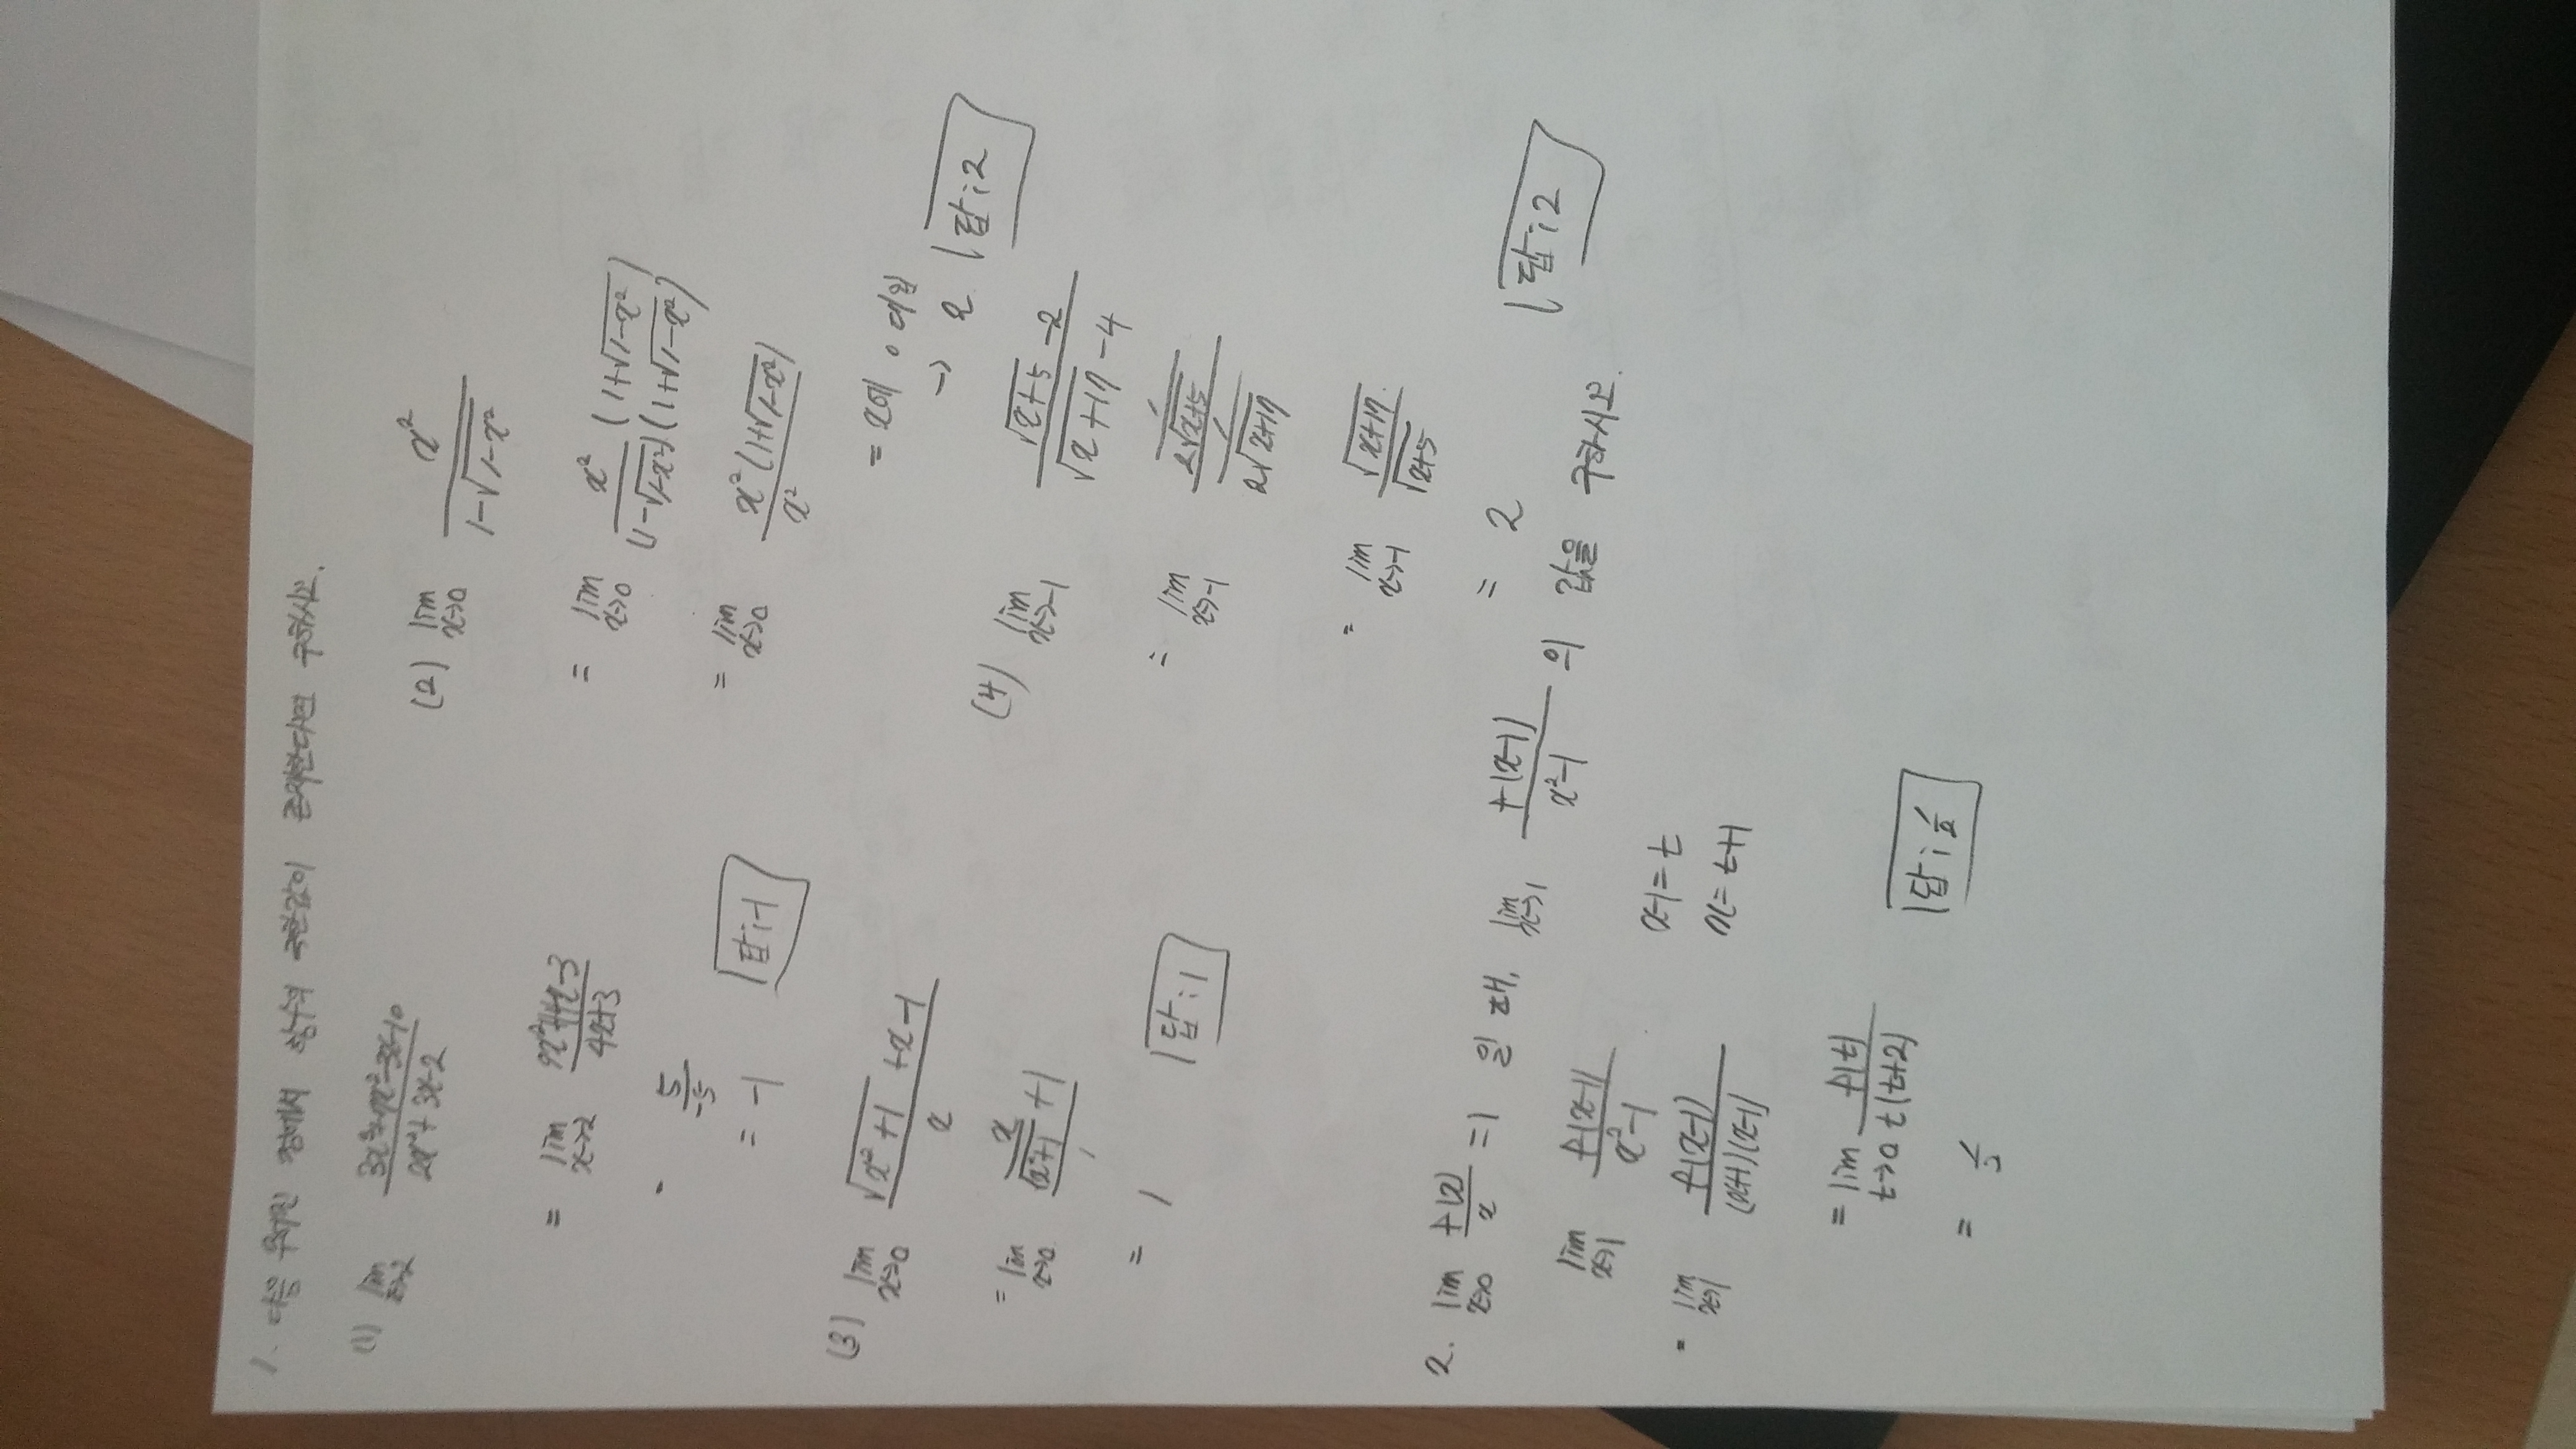 1. 다음 주어진 점에서 함수의 극한값이 존재한다면 구하시오.
(1) lim x→-2 (3x³+7x²-3x-10)/(2x²+3x-2)
= lim x→-2 (9x²+14x-3)/(4x+3)
= 5/-5
= -1 답:-1
(2) lim x→0 x²/(1-√(1-x²))
= lim x→0 x²(1+√(1-x²))/((1-√(1-x²))(1+√(1-x²)))
= lim x→0 x²(1+√(1-x²))/x²
= x에 0 대입
→ 2 답:2
(3) lim x→0 (√(x²+1)+x-1)/x
= lim x→0 (x/√(x²+1)+1)/1
= 1 답:1
(4) lim x→-1 (√(x+5)-2)/(√(x+17)-4)
= lim x→-1 (1/(2√(x+5)))/(1/(2√(x+17)))
= lim x→-1 √(x+17)/√(x+5)
= 2 답:2
2. lim x→0 f(x)/x =1 일 때, lim x→1 f(x-1)/(x²-1) 의 값을 구하시오.
lim x→1 f(x-1)/(x²-1)
x-1=t
= lim x→1 f(x-1)/((x+1)(x-1))
x=t+1
= lim t→0 f(t)/(t(t+2))
= 1/2 답:1/2